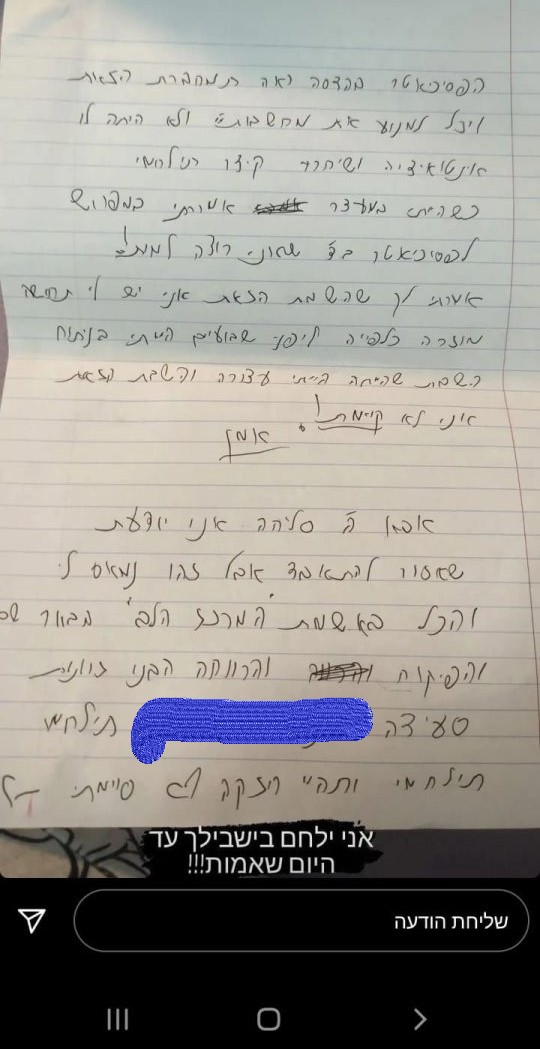 הפסיכיאטר בהדסה ראה המחברת הזאת
ויכל למנוע את מחשבותיי ולא היתה לו
אינטואיציה ושיחרר קיצר
כשהייתי במעצר אמרתי במפורש
לפסיכיאטר שאני רוצה למות!
אמרתי לך שהשבת הזאת אני יש לי תחושה
מוזרה כלפייה לפני שבועים הייתי בניתוח
השבת שהייתה הייתי עצורה והשבת הזאת
אני לא קיימת!
אמן
אבא סליחה אני יודעת
שאסור להתאבד אבל זהו נמאס לי
והכל באשמת "המרכז הלב" מבוא
והפיקוח והרווחה הבני זונות
סעידה תילחמי
תילחמי ותהיי חזקה לא סיימתי
אני ילחם בישבילך עד
היום שאמות!!!
שליחת הודעה